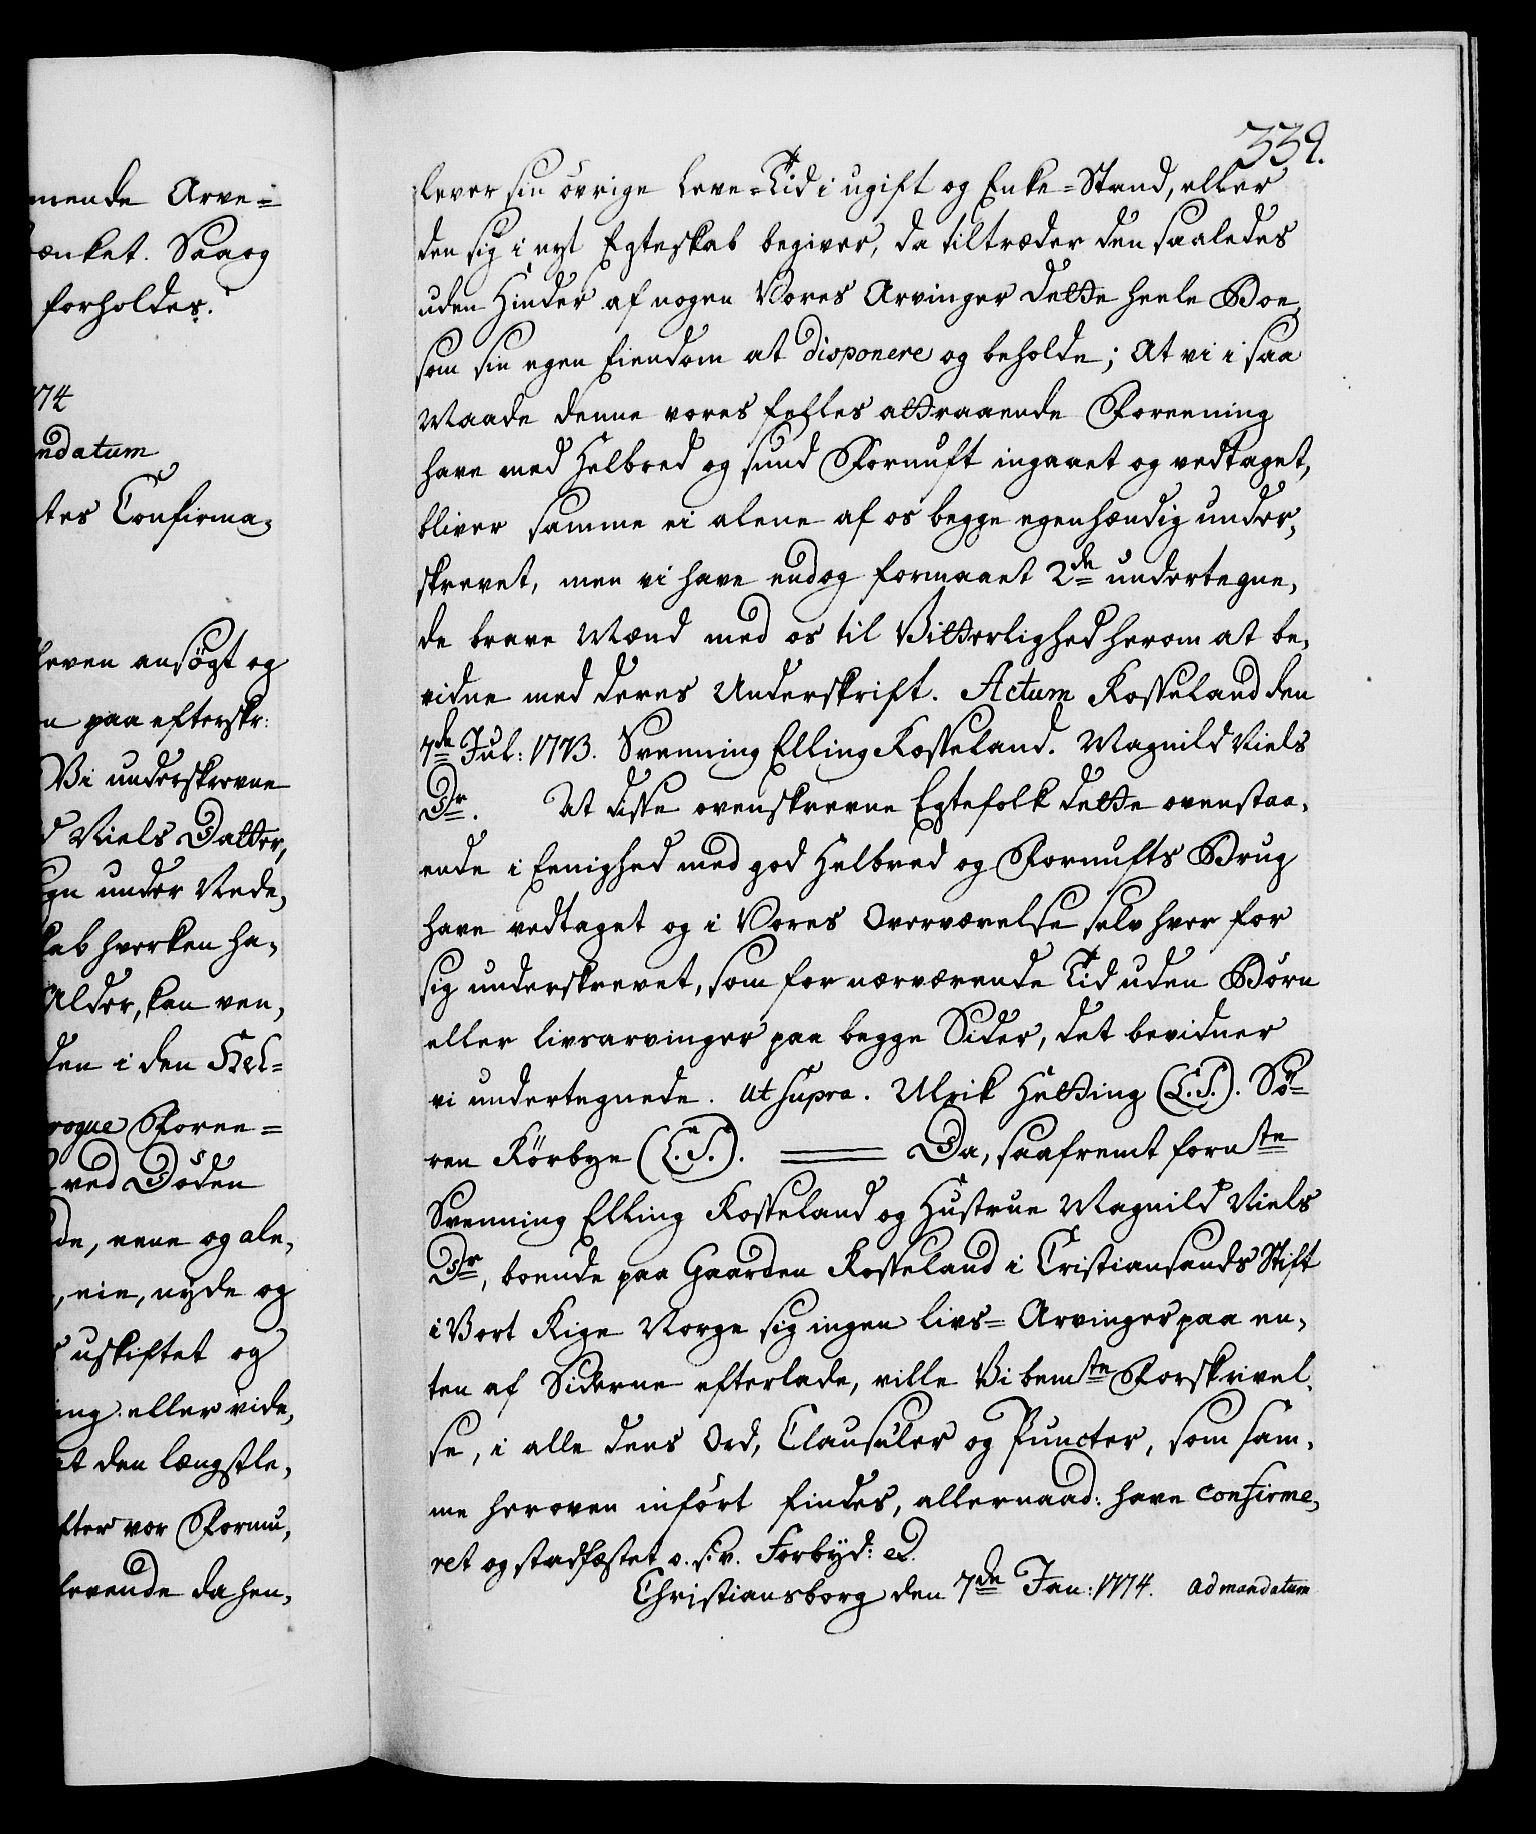 mende Arve=
ænket. Saa og
forholdes.
774
ndatum
tes Confirma-
leven ansøgt og
n paa efterskr:
Vi underskrevne
d Niels Datter,
gn under Nede,
kab hverken ha-
Alder, kan ven,
den i den Hel-
rogne Foree=
ved Døden
de, eene og ale,
, eie, nyde og
s uskiftet og
ing eller vide,
at den længstle,
fter vor Formu,
levende da hen,
339.
lever sin övrige Leve-Tid i ugift og Enke-Stand, eller
den sig i nyt Egteskab begiver, da tiltræder den saaledes
uden Hinder af nogen Vores Arvinger dette heele Boe,
som sin egen Eiendom at disponere og beholde; At vi i saa
Maade denne vores felles attraaende Foreening
have med Helbred og sund Fornuft ingaaet og vedtaget,
bliver samme ei alene af os begge egenhændig under,
skrevet, men vi have endog formaaet 2de undertegne,
de brave Mænd med os til Vitterlighed herom at be,
vidne med deres Underskrift. Actum Kosseland den
7de Jul: 1773. Svenning Elling Kosseland. Magnild Niels
Dr. At disse ovenskrevne Egtefolk dette ovenstaa,
ende i Eenighed med god Helbred og Fornufts Brug
have vedtaget og i Vores Overværelse selv hver for
sig underskrevet, som for nærværende Tid uden Börn
eller livsarvinger paa begge Sider, det bevidner
vi undertegnede. Ut supra. Ulrik Hetting (L.S.). Sö-
ren Körbye (L.S.). == Da, saafremt fornte
Svenning Elling Kosseland og Hustrue Magnild Niels
Dr, boende paa Gaarden Kosseland i Cristiansands Stift
i Vort Rige Norge sig ingen livs-Arvinger paa en,
ten af Siderne efterlade, ville Vi bemte Forskrivel,
se, i alle dens Ord, Clausuler og Puncter, som sam,
me heroven infört findes, allernaad: have confirme,
ret og stadfæstet o. s. v. Forbyd: etc.
Christiansborg den 7de Jan: 1774. ad mandatum